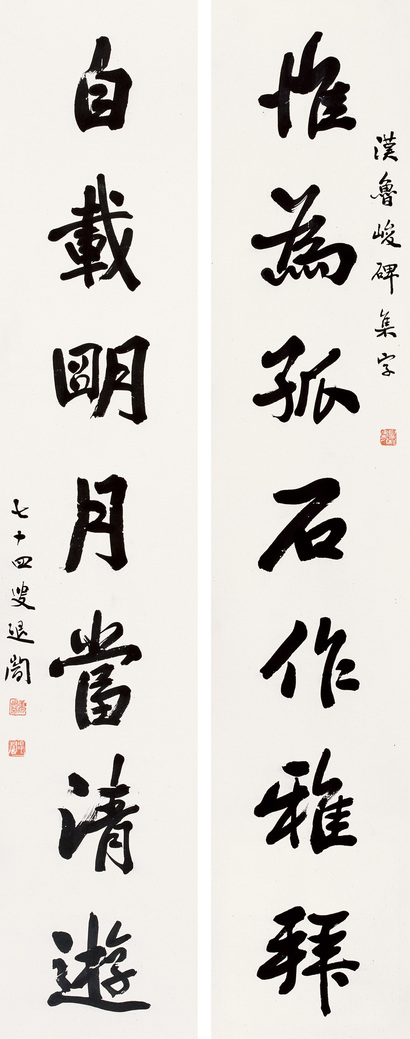 漢魯峻碑集字
惟為孤石作雅拜
自載明月當清遊
七十四叟退闇